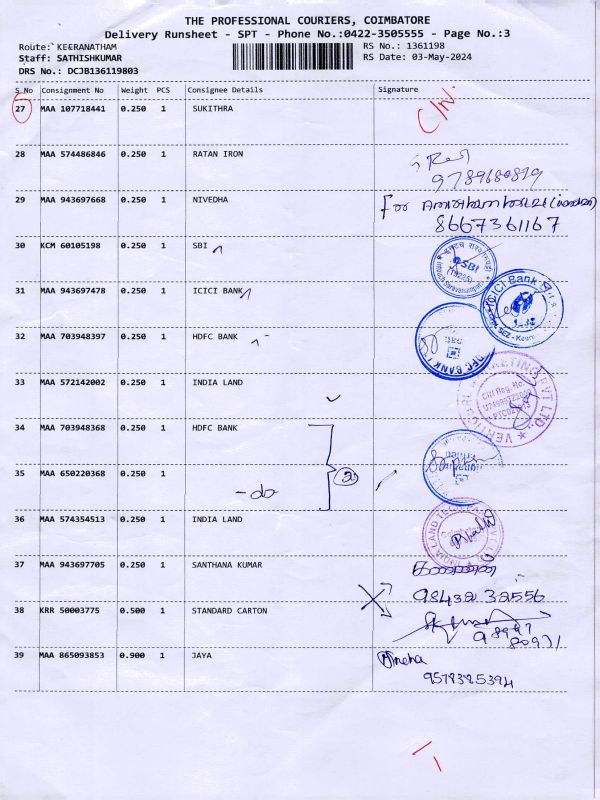 THE PROFESSIONAL COURIERS, COIMBATORE
Delivery Runsheet - SPT - Phone No.:0422-3505555 - Page No.:3
Route: KEERANATHAM
RS No.: 1361198
Staff: SATHISHKUMAR
RS Date: 03-May-2024
DRS No.: DCJB136119803
S No Consignment No Weight PCS Consignee Details Signature
27 MAA 107718441 0.250 1 SUKITHRA
28 MAA 574486846 0.250 1 RATAN IRON
9789680829
29 MAA 943697668 0.250 1 NIVEDHA for
8667361167
30 KCM 60105198 0.250 1 SBI
SBI
31 MAA 943697478 0.250 1 ICICI BANK
ICICI Bank
32 MAA 703948397 0.250 1 HDFC BANK
HDFC BANK
33 MAA 572142002 0.250 1 INDIA LAND
34 MAA 703948368 0.250 1 HDFC BANK
35 MAA 650220368 0.250 1 -do 2
36 MAA 574354513 0.250 1 INDIA LAND
37 MAA 943697705 0.250 1 SANTHANA KUMAR
98432 32556
38 KRR 50003775 0.500 1 STANDARD CARTON
39 MAA 865093853 0.900 1 JAYA Sneha
9578385394